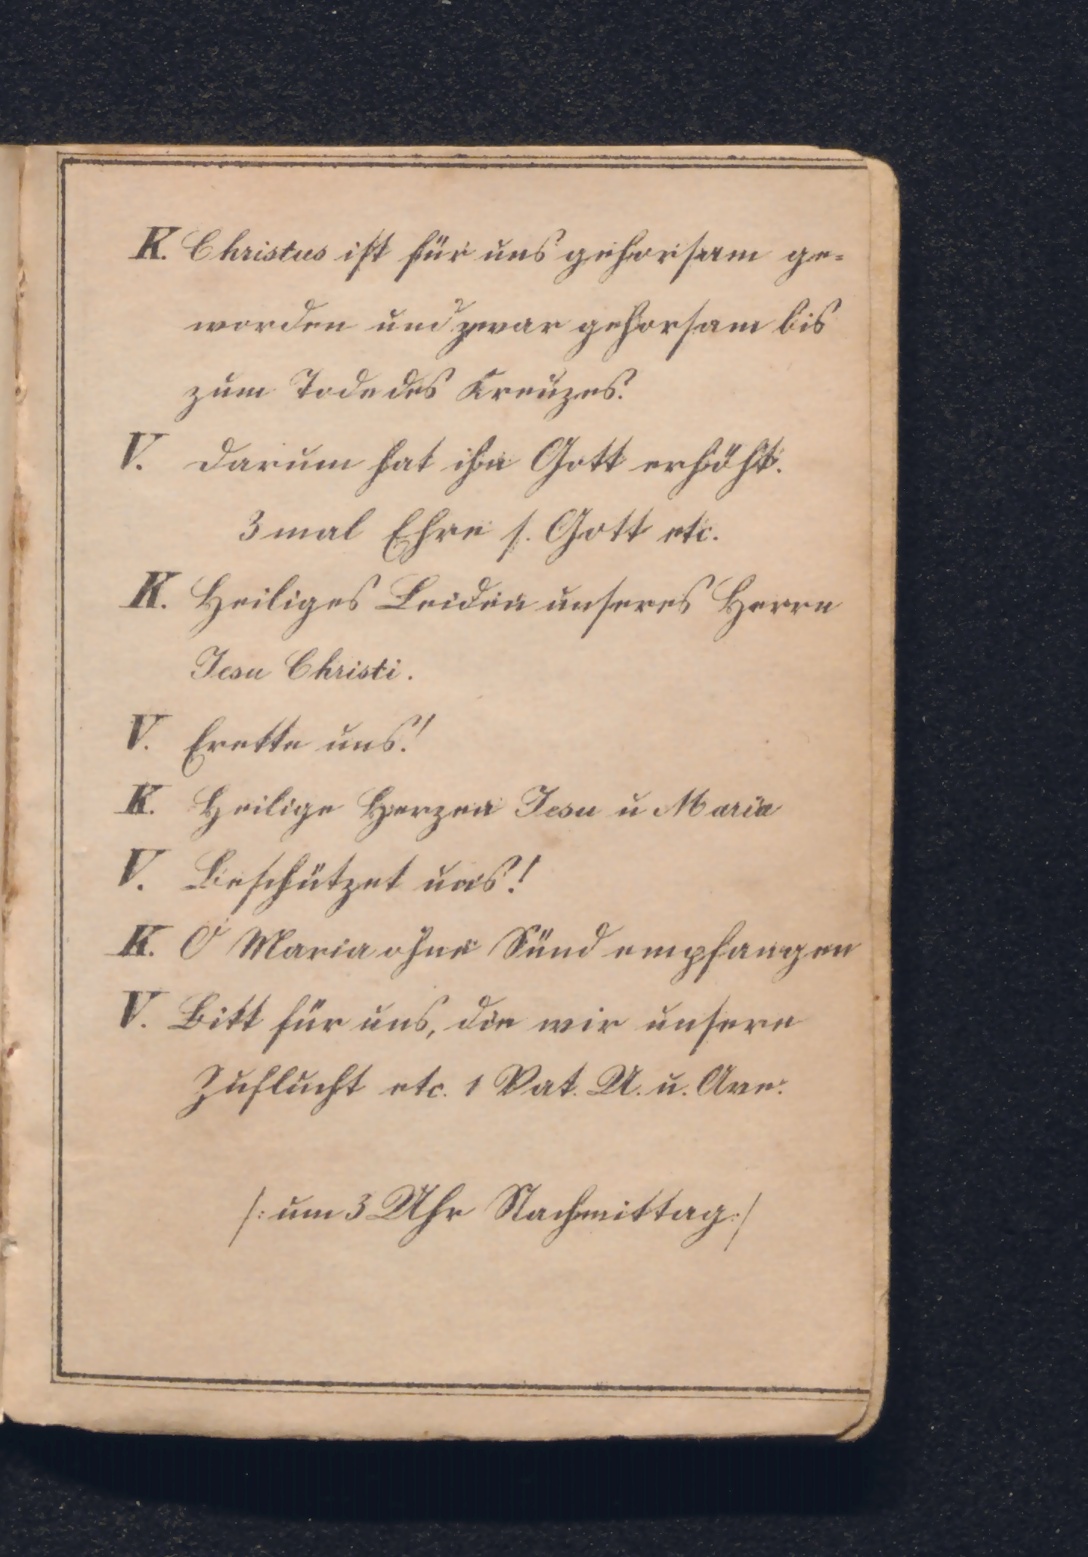 K. Christus ist für uns gehorsam ge-
worden und zwar gehorsam bis
zum Tode des Kreuzes.
V. Darum hat ihn Gott erhöht.
3 mal Ehre s. Gott etc.
K. Heiliges Leiden unseres Herrn
Jesu Christi.
V. Erette uns!
K. Heilige Herzen Jesu u Maria
V. Beschützet uns!
K. O Maria ohne Sünd empfangen
V. Bitt für uns, die wir unsere
Zuflucht etc. 1 Vat. U. u. Ave.
/: um 3 Uhr Nachmittag :/